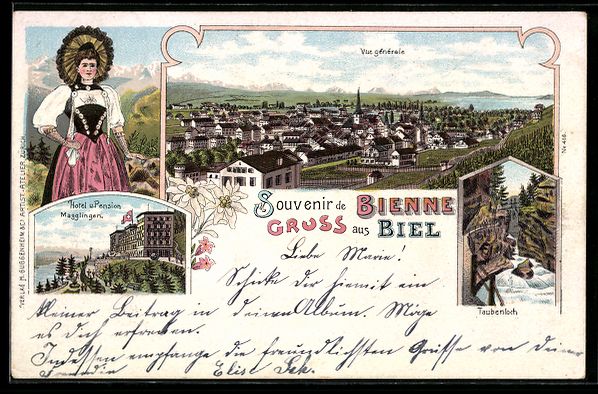 Vue générale
Souvenir de BIENNE
GRUSS aus BIEL
Hotel u. Pension
Magglingen.
Taubenloch
VERLAG H. GUGGENHEIM & Cº ARTIST. ATELIER, ZÜRICH.
Nr. 468.
Liebe Marie!
Schicke Dir hiemit ein
kleiner Beitrag in deinem Album. Möge
es dich erfreuen.
Indessen empfange die freundlichsten Grüsse von deiner
Freundin Elise